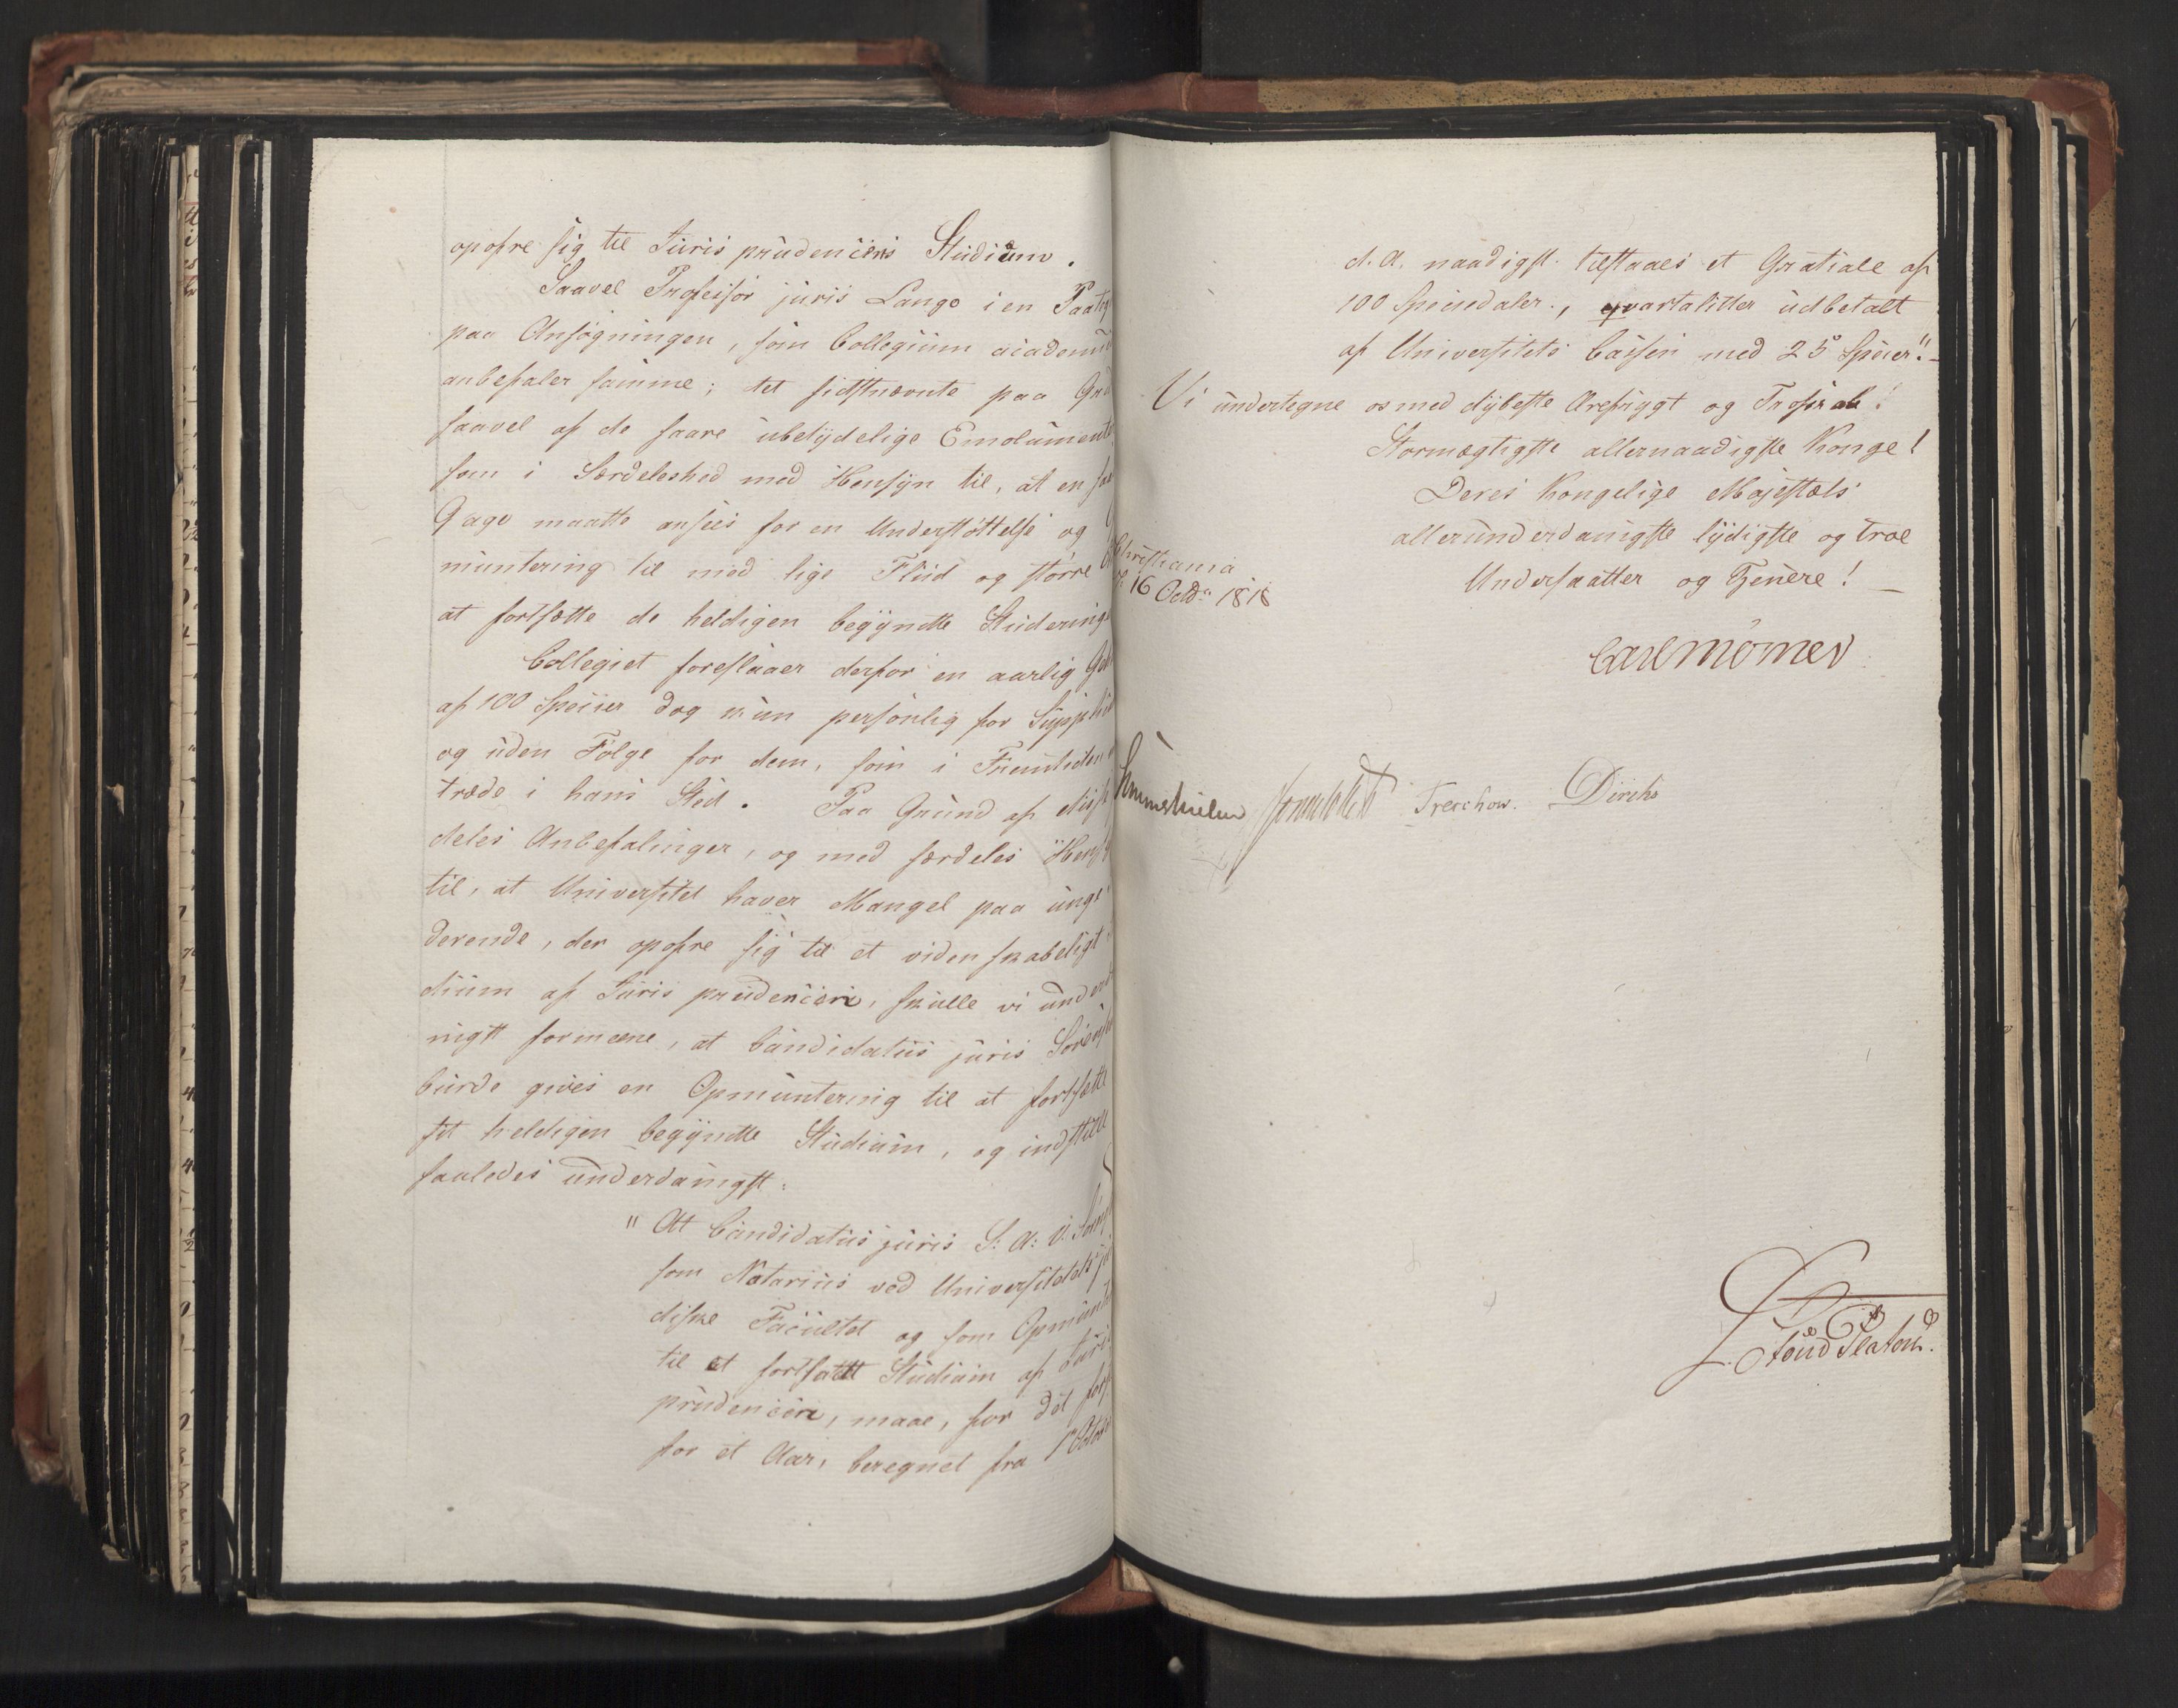 opofre sig til Jurisprudencens Studium.
Saavel Professor juris Lange i en Paateg
paa Ansøgningen, som Collegium academic
anbefaler samme; det sidstnævnte paa Gru
saavel af de faare ubetydelige Emolumente
som i Særdeleshed med Hensyn til, at en saa
Gage maatte ansees for en Understøttelse og
muntering til med lige Fliid og større
at fortsætte de heldigen begyndte Studeringe
Collegiet foreslaaer derfor en aarlig
af 100 Specier dog kun personlig for Supplic
og uden Følge for dem, som i Fremtiden
træde i hans Sted. Paa Grund af disse
deles Anbefalinger, og med særdeles Hensy
til, at Universitet haver Mangel paa unge
derende, der opofre sig til et videnskabeligt
dium af Jurisprudencen, skulle vi under
nigst formeene, at Candidatus juris Sørens
burde gives en Opmuntring til at fortsætte
sit heldigen begyndte Studium, og indstille
saaledes underdanigst:
" At Candidatus juris S: A: V: Sørens
som Notarius ved Universitetets ju
diske Facultet og som Opmunt
til et fortsatt Studium af Juris
prudencen, maae, for det første
for et Aar, beregnet fra 1ste Octob
d. A. naadigst tilstaaes et Gratiale af
100 Speciedaler, qvartaliter udbetalt
af Universitets Cassen med 25 Specier."
Vi undertegne os med dybeste Ærefrygt og Troskab!
Stormægtigste allernaadigste Konge!
Deres Kongelige Majestæts
allerunderdanigste lydigste og troe
Undersaatter og Tjenere!
Christiania
d: 16 Octbr 1818
Carl Mörner
Sommerhielm Treschow. Diriks
L. Stoud Platou.